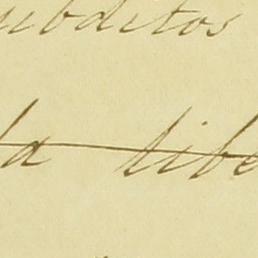 subditos
la libe